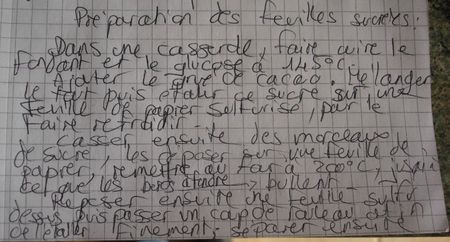 Préparation des feuilles sucrées:
Dans une casserole, faire cuire le
fondant et le glucose à 145°C.
Ajouter le grué de cacao. Mélanger
le tout puis étaler ce sucre sur une
feuille de papier sulfurisé, pour le
faire refroidir.
Casser ensuite des morceaux
de sucre, les déposer sur une feuille de
papier, remettre au four à 200°C, jusqu'à
ce que les bords bullent.
Reposer ensuite une feuille sulfu
dessus puis passer un coup de rouleau afin
de l'étaler finement. Séparer ensuite